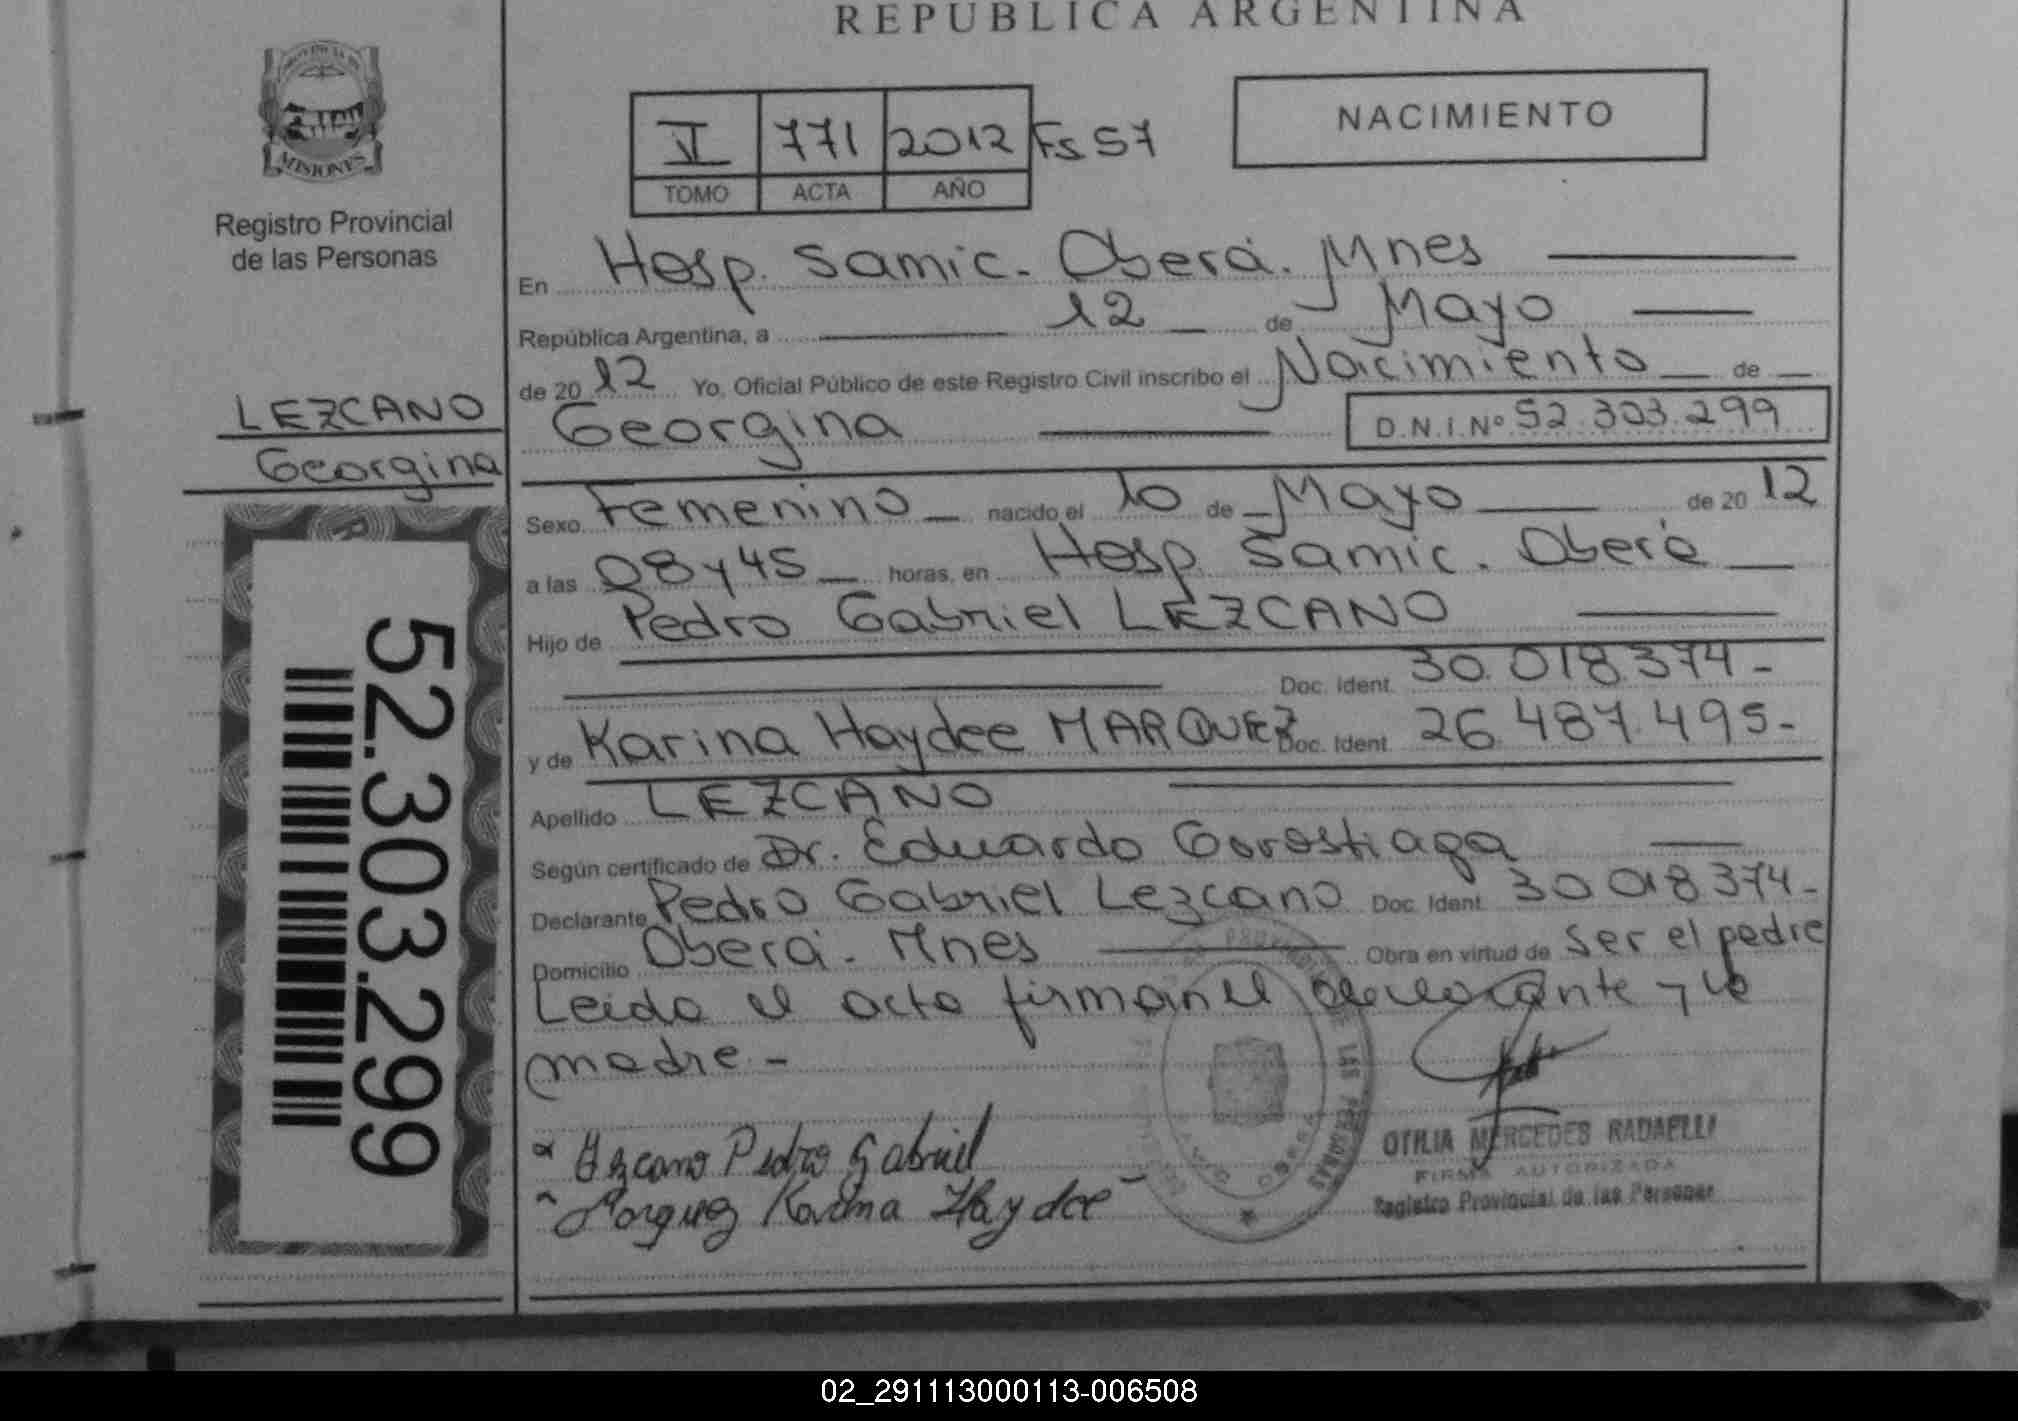 REPUBLICA ARGENTINA
PROVINCIA DE
MISIONES
Registro Provincial
de las Personas
VI 771 2012 Fs 57
TOMO ACTA AÑO
NACIMIENTO
En Hosp. Samic. Oberá. Mnes
República Argentina, a 12 de Mayo
de 2012 Yo, Oficial Público de este Registro Civil inscribo el Nacimiento de
Georgina D.N.I.Nº 52.303.299
LEZCANO
Georgina
Sexo Femenino nacido el 10 de Mayo de 2012
a las 08 y 45 horas, en Hosp Samic. Oberá
Hijo de Pedro Gabriel LEZCANO
Doc. Ident. 30.018.374-
y de Karina Haydee MARQUEZ Doc. Ident. 26.487.495-
Apellido LEZCANO
Según certificado de Dr. Eduardo Gorostiaga
Declarante Pedro Gabriel Lezcano Doc. Ident. 30.018.374-
Domicilio Oberá. Mnes Obra en virtud de ser el padre
Leida el acta firman el declarante y la
madre-
Lezcano Pedro Gabriel
Marquez Karina Haydee
52.303.299
LAS PERSONAS
OTILIA MERCEDES RADAELLI
FIRMA AUTORIZADA
Registro Provincial de las Personas
02_291113000113-006508